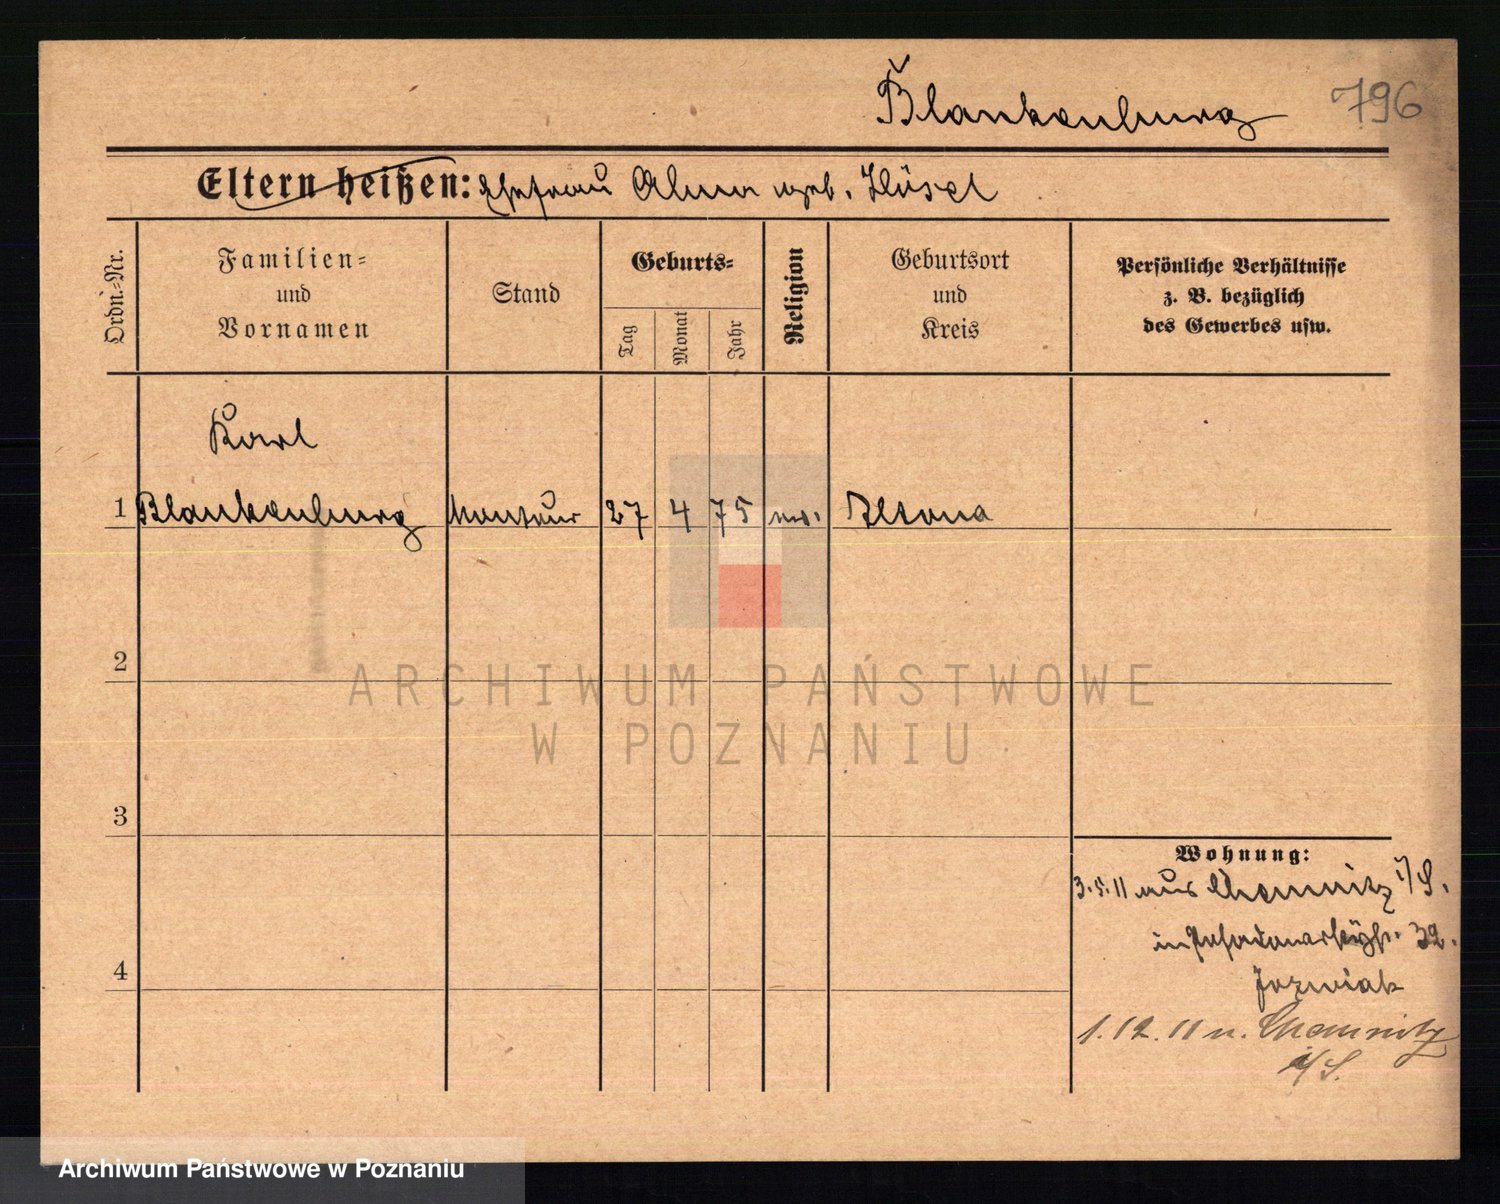 Blankenburg 796
Eltern heißen: Ehefrau Alma geb.
Ordn.-Nr.
Familien=
und
Vornamen
Stand
Geburts=
Tag
Monat
Jahr
Religion
Geburtsort
und
Kreis
Persönliche Verhältnisse
z. B. bezüglich
des Gewerbes usw.
Karl
1 Blankenburg Monteur 27 4 75 ev. Altona
2
3
4
Wohnung:
3.5.11 aus Chemnitz i/S.
in 32.
Jozwiak
1.12.11 n. Chemnitz
i/S.
ARCHIWUM PAŃSTWOWE
W POZNANIU
Archiwum Państwowe w Poznaniu